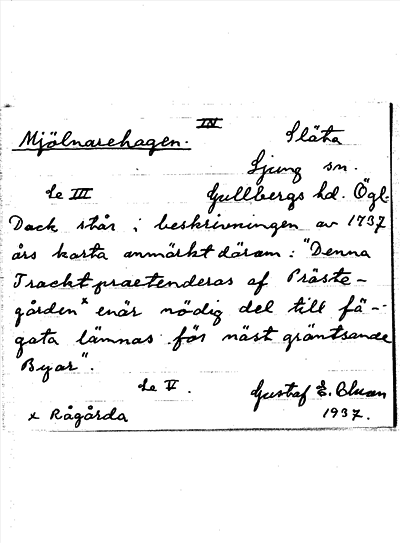 IV
Mjölnarehagen. Släta
Ljung sn.
Se III Gullbergs hd. Ögl.
Dock står i beskrivningen av 1737
års karta anmärkt därom: "Denna
Tracht praetenderas af Präste-
gården x enär nödig del till fä-
gata lämnas för näst gräntsande
Byar".
Se V. Gustaf E:son
x Rågårda 1937.